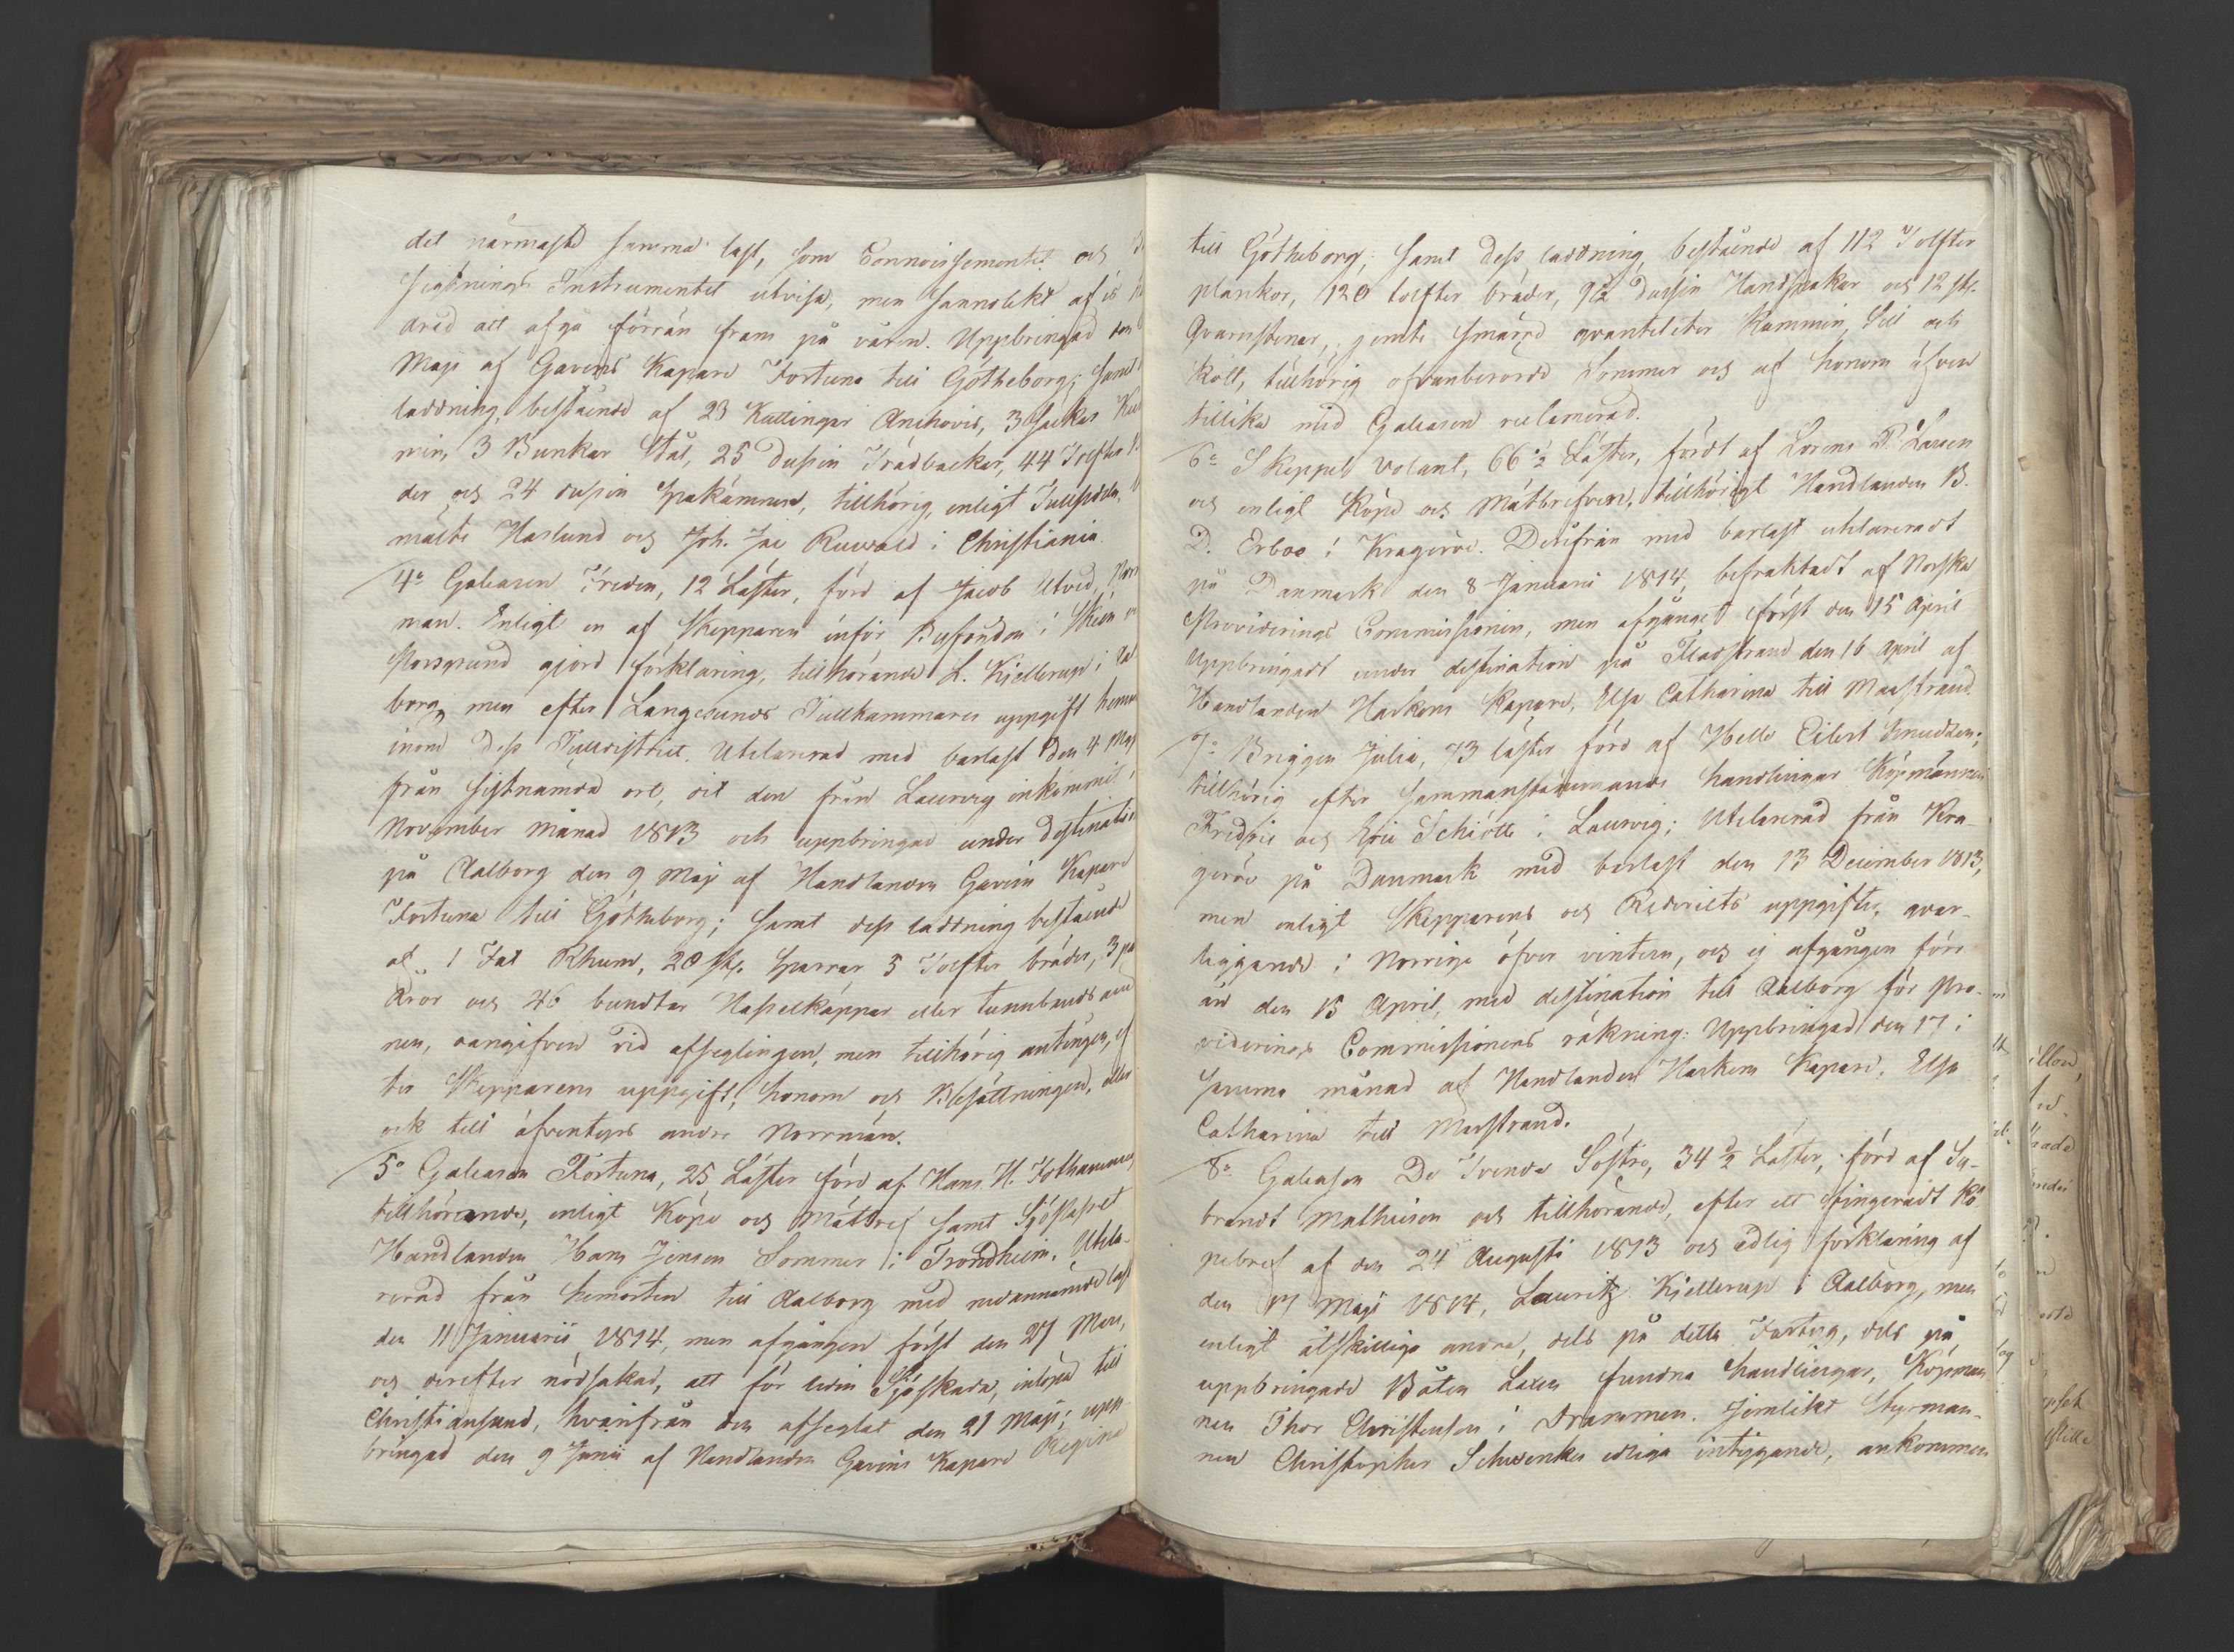 det närmaste samma last, som Connoissementet och
Sigtnings Instrumentet utvisa, men sannolikt af is
drad att afgå förrän fram på våren. Uppbringad den
Maji af Gavins Kapare Fortuna till Götheborg; samt
laddning, bestående af 23 Kuttingar Anchovis, 3 Säckar Ku
min, 3 Bunkar Stål, 25 dussin Trädbackar, 44 Tolfter
der och 24 dussin Spakämnen, tillhörig, enligt Tullsedlen,
mälte Haslund och Joh. Jac Ruwald i Christiania.
4o Galeasen Freden, 12 Läster, förd af Jacob Utved, Norr
man. Enligt en af Skepparen inför Byfogden i Skeen
Porsgrund gjord förklaring, tillhörande L. Kjellerup i Aal
borg, men efter Langesunds Tullkammares uppgift hemma
inom dess Tulldistrict. Utclarerad med barlast den 4 Maj
från sistnämda ort, dit den från Laurvig inkommit,
November månad 1813 och uppbringad under destination
på Aalborg den 9 Maji af Handlanden Gavin Kapare
Fortuna till Götheborg; samt dess laddning bestående
af 1 Fat Rhum, 20 st. Sparrar 5 Tolfter bräder, 3 par
Åror och 46 bundtar Hasselkäppar eller tunnbands äm
nen, oangifven vid afseglingen, men tillhörig antingen, ef
ter Skepparens uppgift, honom och Besättningen, eller
ock till äfventyrs andre Norrmän.
5o Galeasen Fortuna, 25 Läster förd af Hans H.
tillhörande, enligt Köpe och Mätbref samt Sjöpasset
Handlanden Hans Jensen Sommer i Trondheim. Utcla-
rerad från hemorten till Aalborg med nedannämde last
den 11 Januarii 1814, men afgången först den 27 Mars,
och derefter nödsakad, att för liden Sjöskada, inlöpa till
Christiansund, hvarifrån den afseglat den 21 Maji; upp-
bringad den 9 Junii af Handlanden Gavins Kapare Regina
till Götheborg; samt dess laddning bestående af 112 Tolfter
plankor, 120 tolfter bräder, 9½ dussin Handspakar och 12 st.
Qvarnstenar, jemte smärre qvantiteter Kummin, Sill och
Kött, tillhörig ofvanberörde Sommer och af honom äfven
tillika med Galeasen reclamerad.
6o Skeppet Volant, 66½ Läster, fördt af Lorens P. Larsen
och enligt Köpe och Mätbrefven, tillhörigt Handlanden B.
D. Erboe i Krageröe. Derifrån med barlast utclareradt
på Danmark den 8 Januarii 1814, befraktadt af Norska
Provideringe Commissionen, men afgånget först den 15 April
Uppbringadt under destination på Fladstrand den 16 April af
Handlanden Harkens Kapare, Elsa Catharina till Marstrand.
7o Briggen Julia, 73 läster förd af Helle Eilert Knudsen;
tillhörig efter sammanstämmande handlingar Köpmännen
Fredric och Eric Schiötte i Laurvig; Utclarerad från Kra-
geröe på Danmark med barlast den 13 December 1813,
men enligt Skepparens och Rederiets uppgifter, qvar-
liggande i Norrige öfver vintern, och ej afgången förr
än den 15 April, med destination till Aalborg för Pro-
viderings Commissionens räkning: Uppbringad den 17 i
samma månad af Handlanden Harkens Kapare, Elsa
Catharina till Marstrand.
8o Galeasen De Tvende Söstre, 34½ Läster, förd af Sy-
brandt Mathiesen och tillhörande, efter ett fingeradt Kö-
pebref af den 24 Augusti 1813 och edlig förklaring af
den 17 Maji 1814, Lauritz Kjellerup i Aalborg, men
enligt åtskillige andre, dels på detta Fartyg, dels på
uppbringade Båten Laxen fundna handlingar, Köpman-
nen Thor Christensen i Drammen. Jemlikt Styrman-
nen Christopher Schwenkes edliga intygande, ankommen